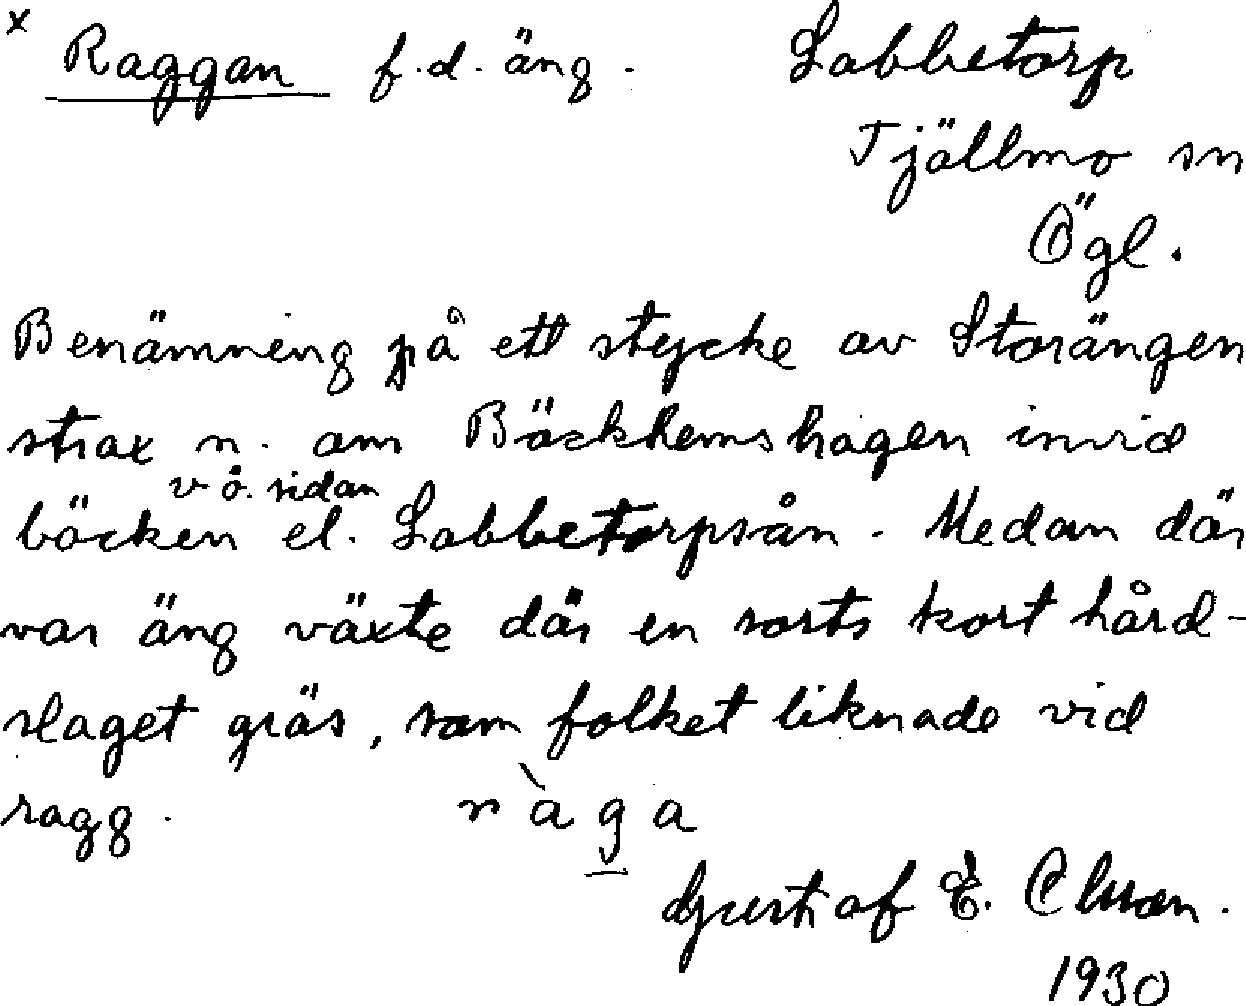 x Raggan f.d. äng. Labbetorp
Tjällmo sn
Ögl.
Benämning på ett stycke av Storängen
strax n. om Bäckhemshagen invid
v ö. sidan
bäcken el. Labbetorpsån. Medan där
var äng växte där en sorts kort hård-
slaget gräs, som folket liknade vid
ragg. ràga
Gustaf E. Olsson.
1930